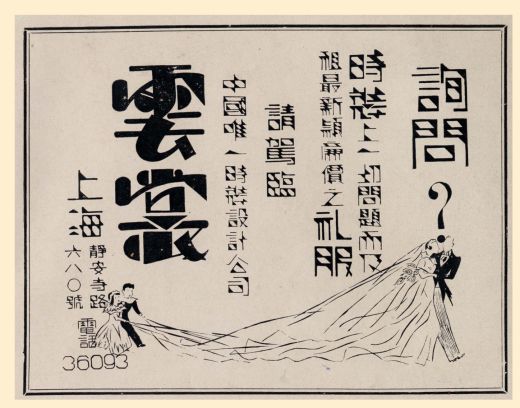 詢問?
時裝上一切問題而及
租最新穎廉價之礼服
請駕臨
中國唯一時裝設計公司
雲裳
上海
靜安寺路
六八〇號
電話
36093